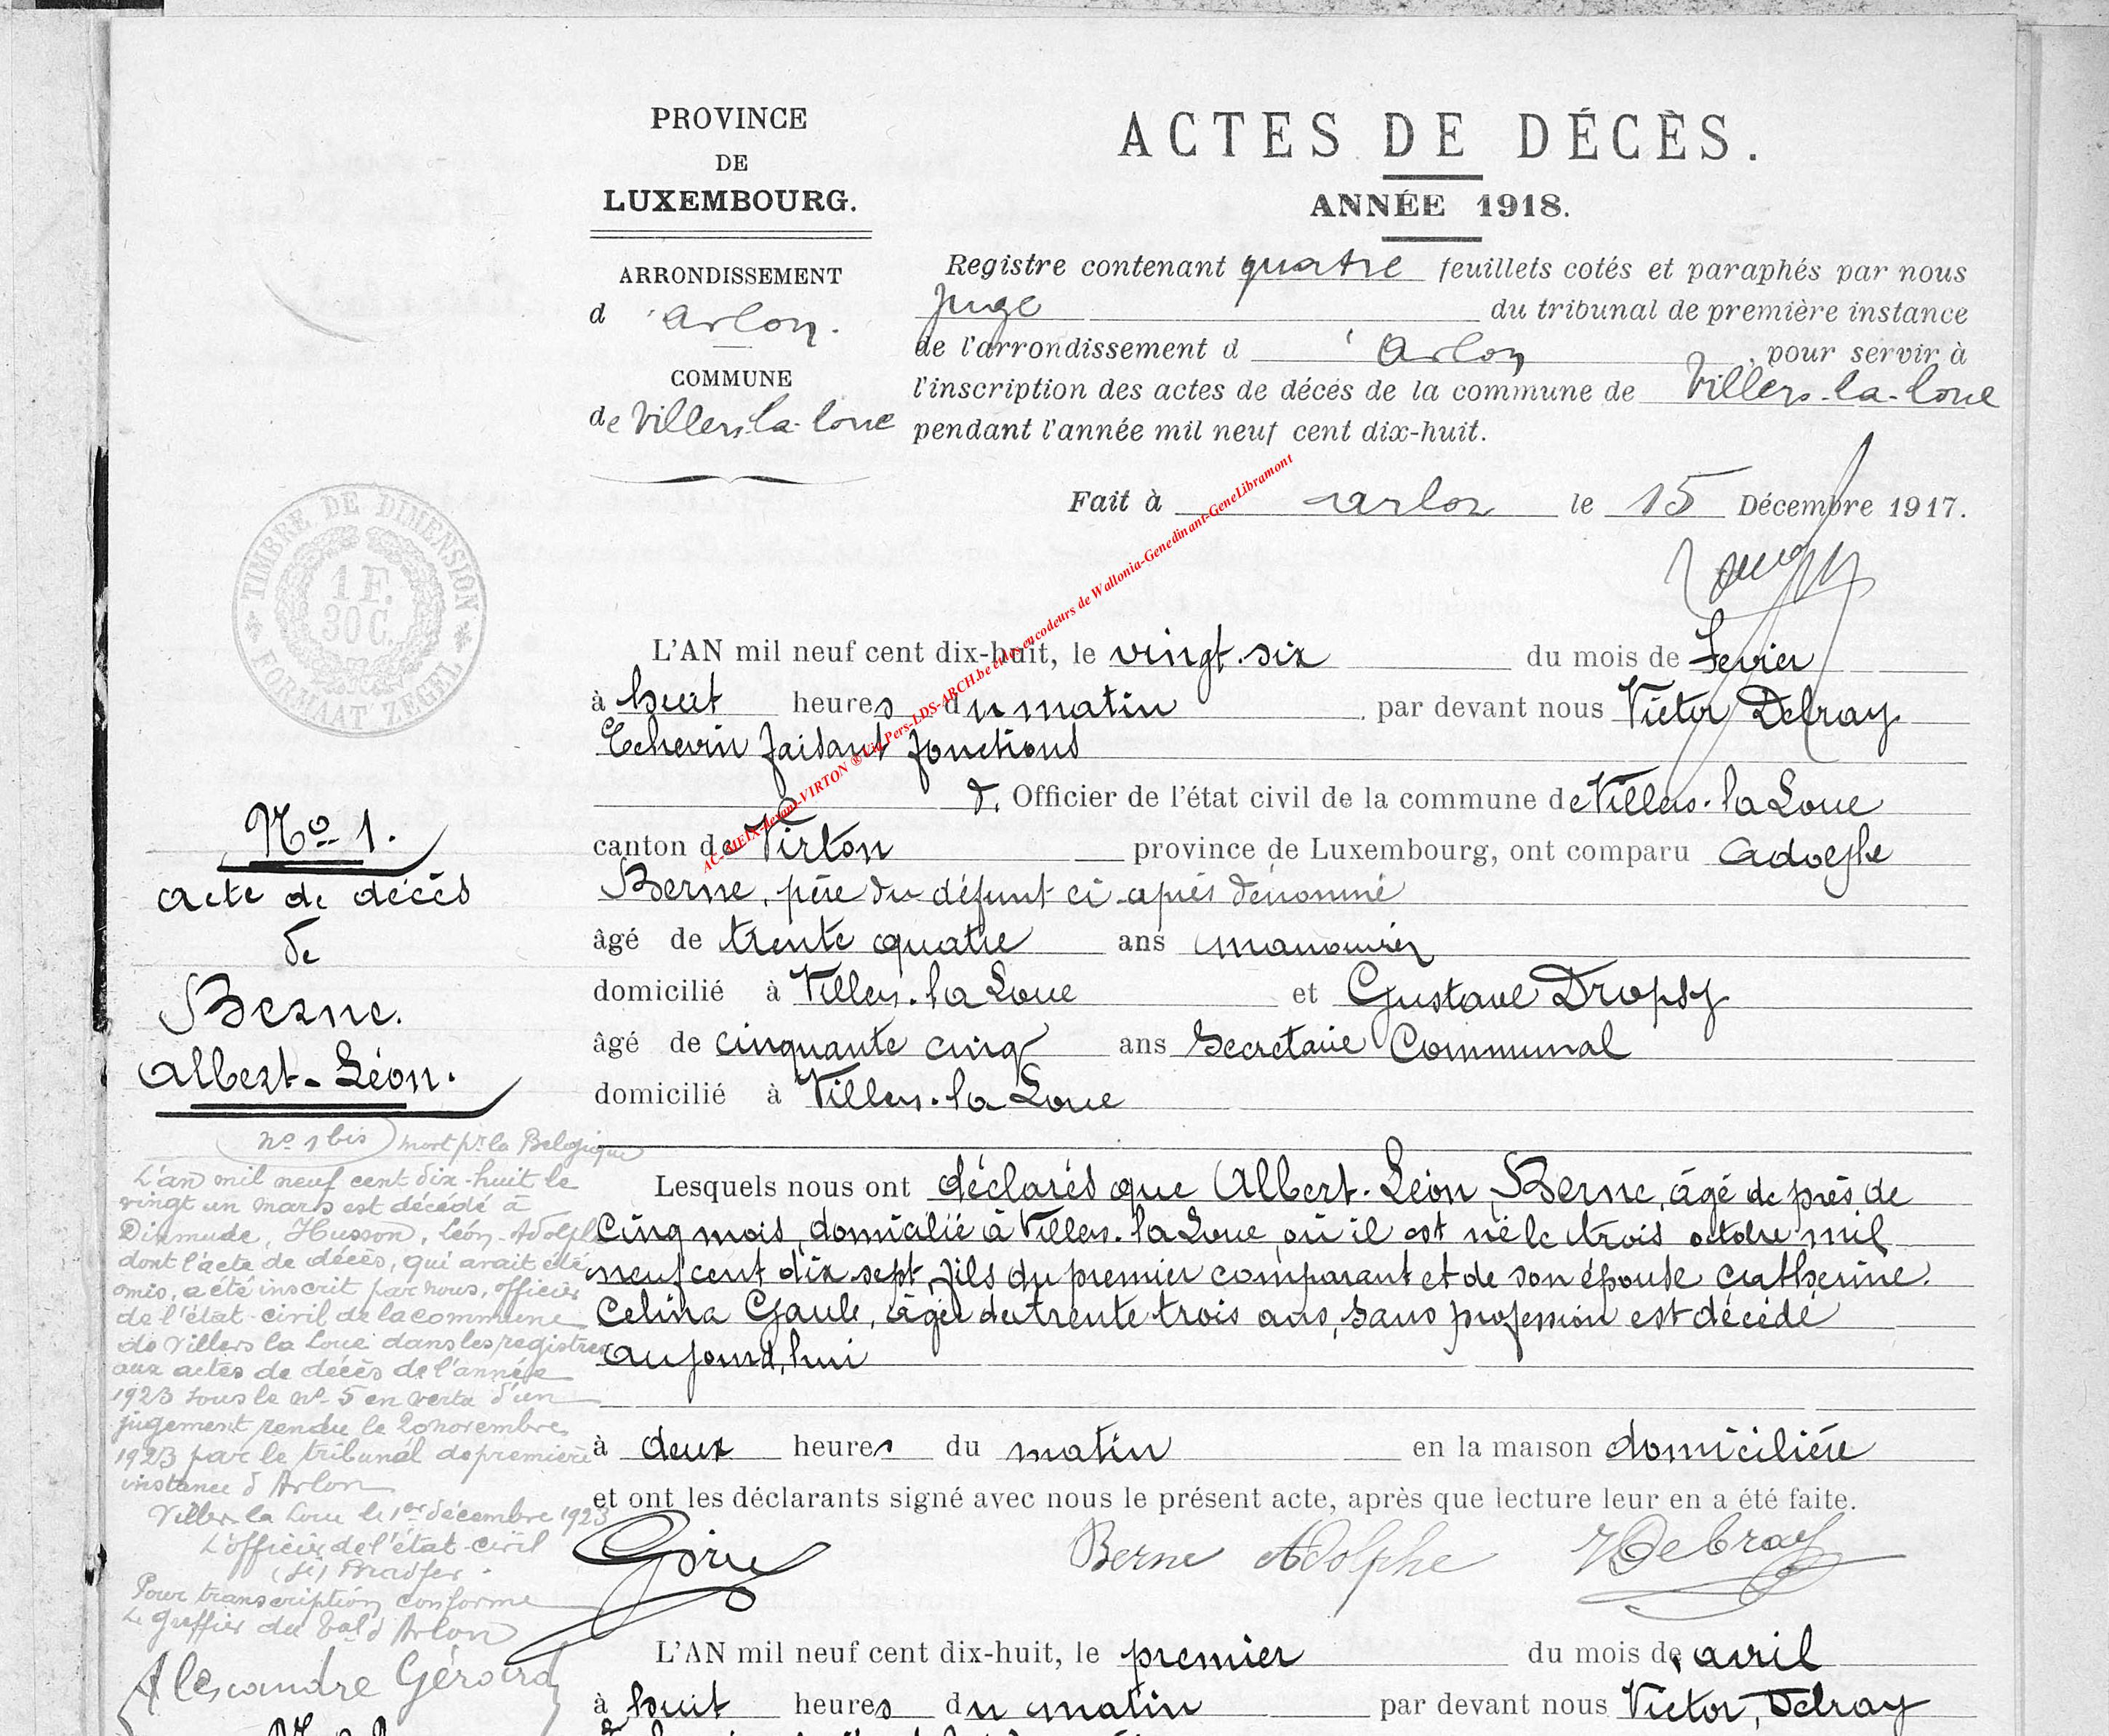 PROVINCE
DE
LUXEMBOURG.
ARRONDISSEMENT
d'Arlon.
COMMUNE
de Villers-la-Loue
ACTES DE DÉCÈS.
ANNÉE 1918.
Registre contenant quatre feuillets cotés et paraphés par nous
Juge du tribunal de première instance
de l'arrondissement d'Arlon, pour servir à
l'inscription des actes de décés de la commune de Villers-la-Loue
pendant l'année mil neuf cent dix-huit.
Fait à Arlon le 15 Décembre 1917.
TIMBRE DE DIMENSION
1 F.
30 C.
FORMAAT ZEGEL
AC-MEIX-devant-VIRTON ® Vie Pers-LDS-ARCH.be et les encodeurs de Wallonia-Genedinant-GeneLibramont
L'AN mil neuf cent dix-huit, le vingt-six du mois de Fevrier
à huit heures du matin par devant nous Victor Delray
Echevin faisant fonctions
d'Officier de l'état civil de la commune de Villers-la Loue
canton de Virton province de Luxembourg, ont comparu Adolphe
Berne, père du défunt ci-après dénommé
âgé de trente quatre ans manouvrier
domicilié à Villers-la Loue et Gustave Dropsy
âgé de cinquante cinq ans Secretaire Communal
domicilié à Villers-la Loue
No 1.
Acte de décès
de
Berne.
Albert-Léon.
Lesquels nous ont déclarés que Albert-Léon Berne, âgé de près de
Cinq mois, domicilié à Villers-la Loue, où il est né le trois octobre mil
neuf cent dix sept, fils du premier comparant et de son épouse Catherine
Celina Gaule, âgée de trente trois ans, sans profession est décédé
aujourd'hui
à deux heures du matin en la maison domicilière
et ont les déclarants signé avec nous le présent acte, après que lecture leur en a été faite.
Berne Adolphe
No 1 bis mort pr la Belgique
L'an mil neuf cent dix-huit le
vingt un mars est décédé à
Dixmude, Husson, Léon-Adolphe
dont l'acte de décès, qui avait été
omis, a été inscrit par nous, officier
de l'état-civil de la commune
de Villers la Loue dans les registres
aux actes de décès de l'année
1923 sous le no 5 en vertu d'un
jugement rendu le 20 novembre
1923 par le tribunal de première
instance d'Arlon
Villers-la Loue le 1er décembre 1923
L'officier de l'état-civil
Pour transcription conforme
Le Greffier du Tal d'Arlon
Alexandre Gérard
L'AN mil neuf cent dix-huit, le premier du mois de avril
à huit heures du matin par devant nous Victor Delray